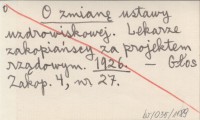 O zmianę ustawy
uzdrowiskowej. Lekarze
zakopiańscy za projektem
rządowym. 1926. — Głos
Zakop. 4, nr 27.